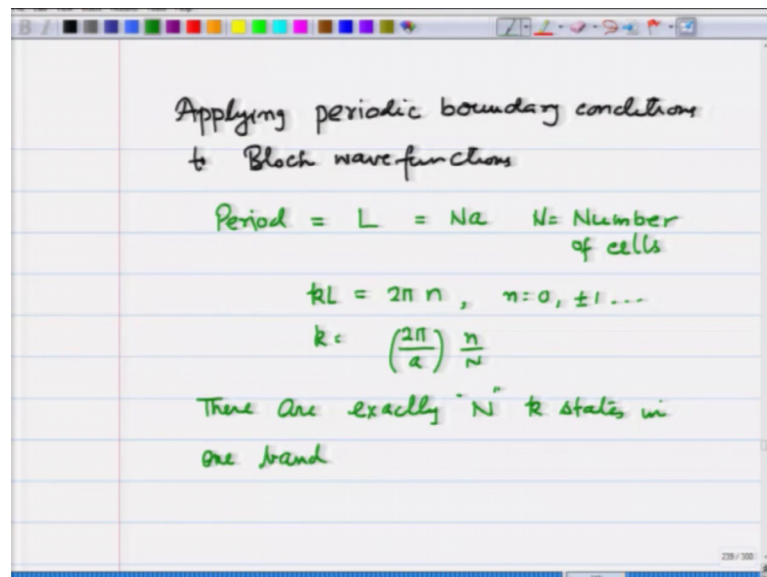 Applying periodic boundary conditions
to Bloch wavefunctions
Period = L = Na N= Number
of cells
kL = 2π n , n=0, ±1...
k= (2π/a) n/N
There are exactly "N" k states in
one band
239 / 300